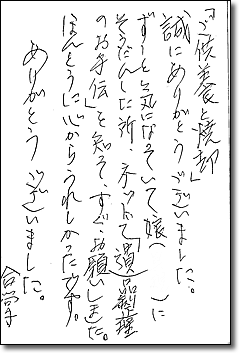 「ご供養と焼却」
誠にありがとうございました。
ずーと気になっていて娘（　）に
そうだんした所、ネットで「遺品整理
のお手伝」を知って、すぐお願いしました。
ほんとうに心からうれしかったです。
ありがとうございました。